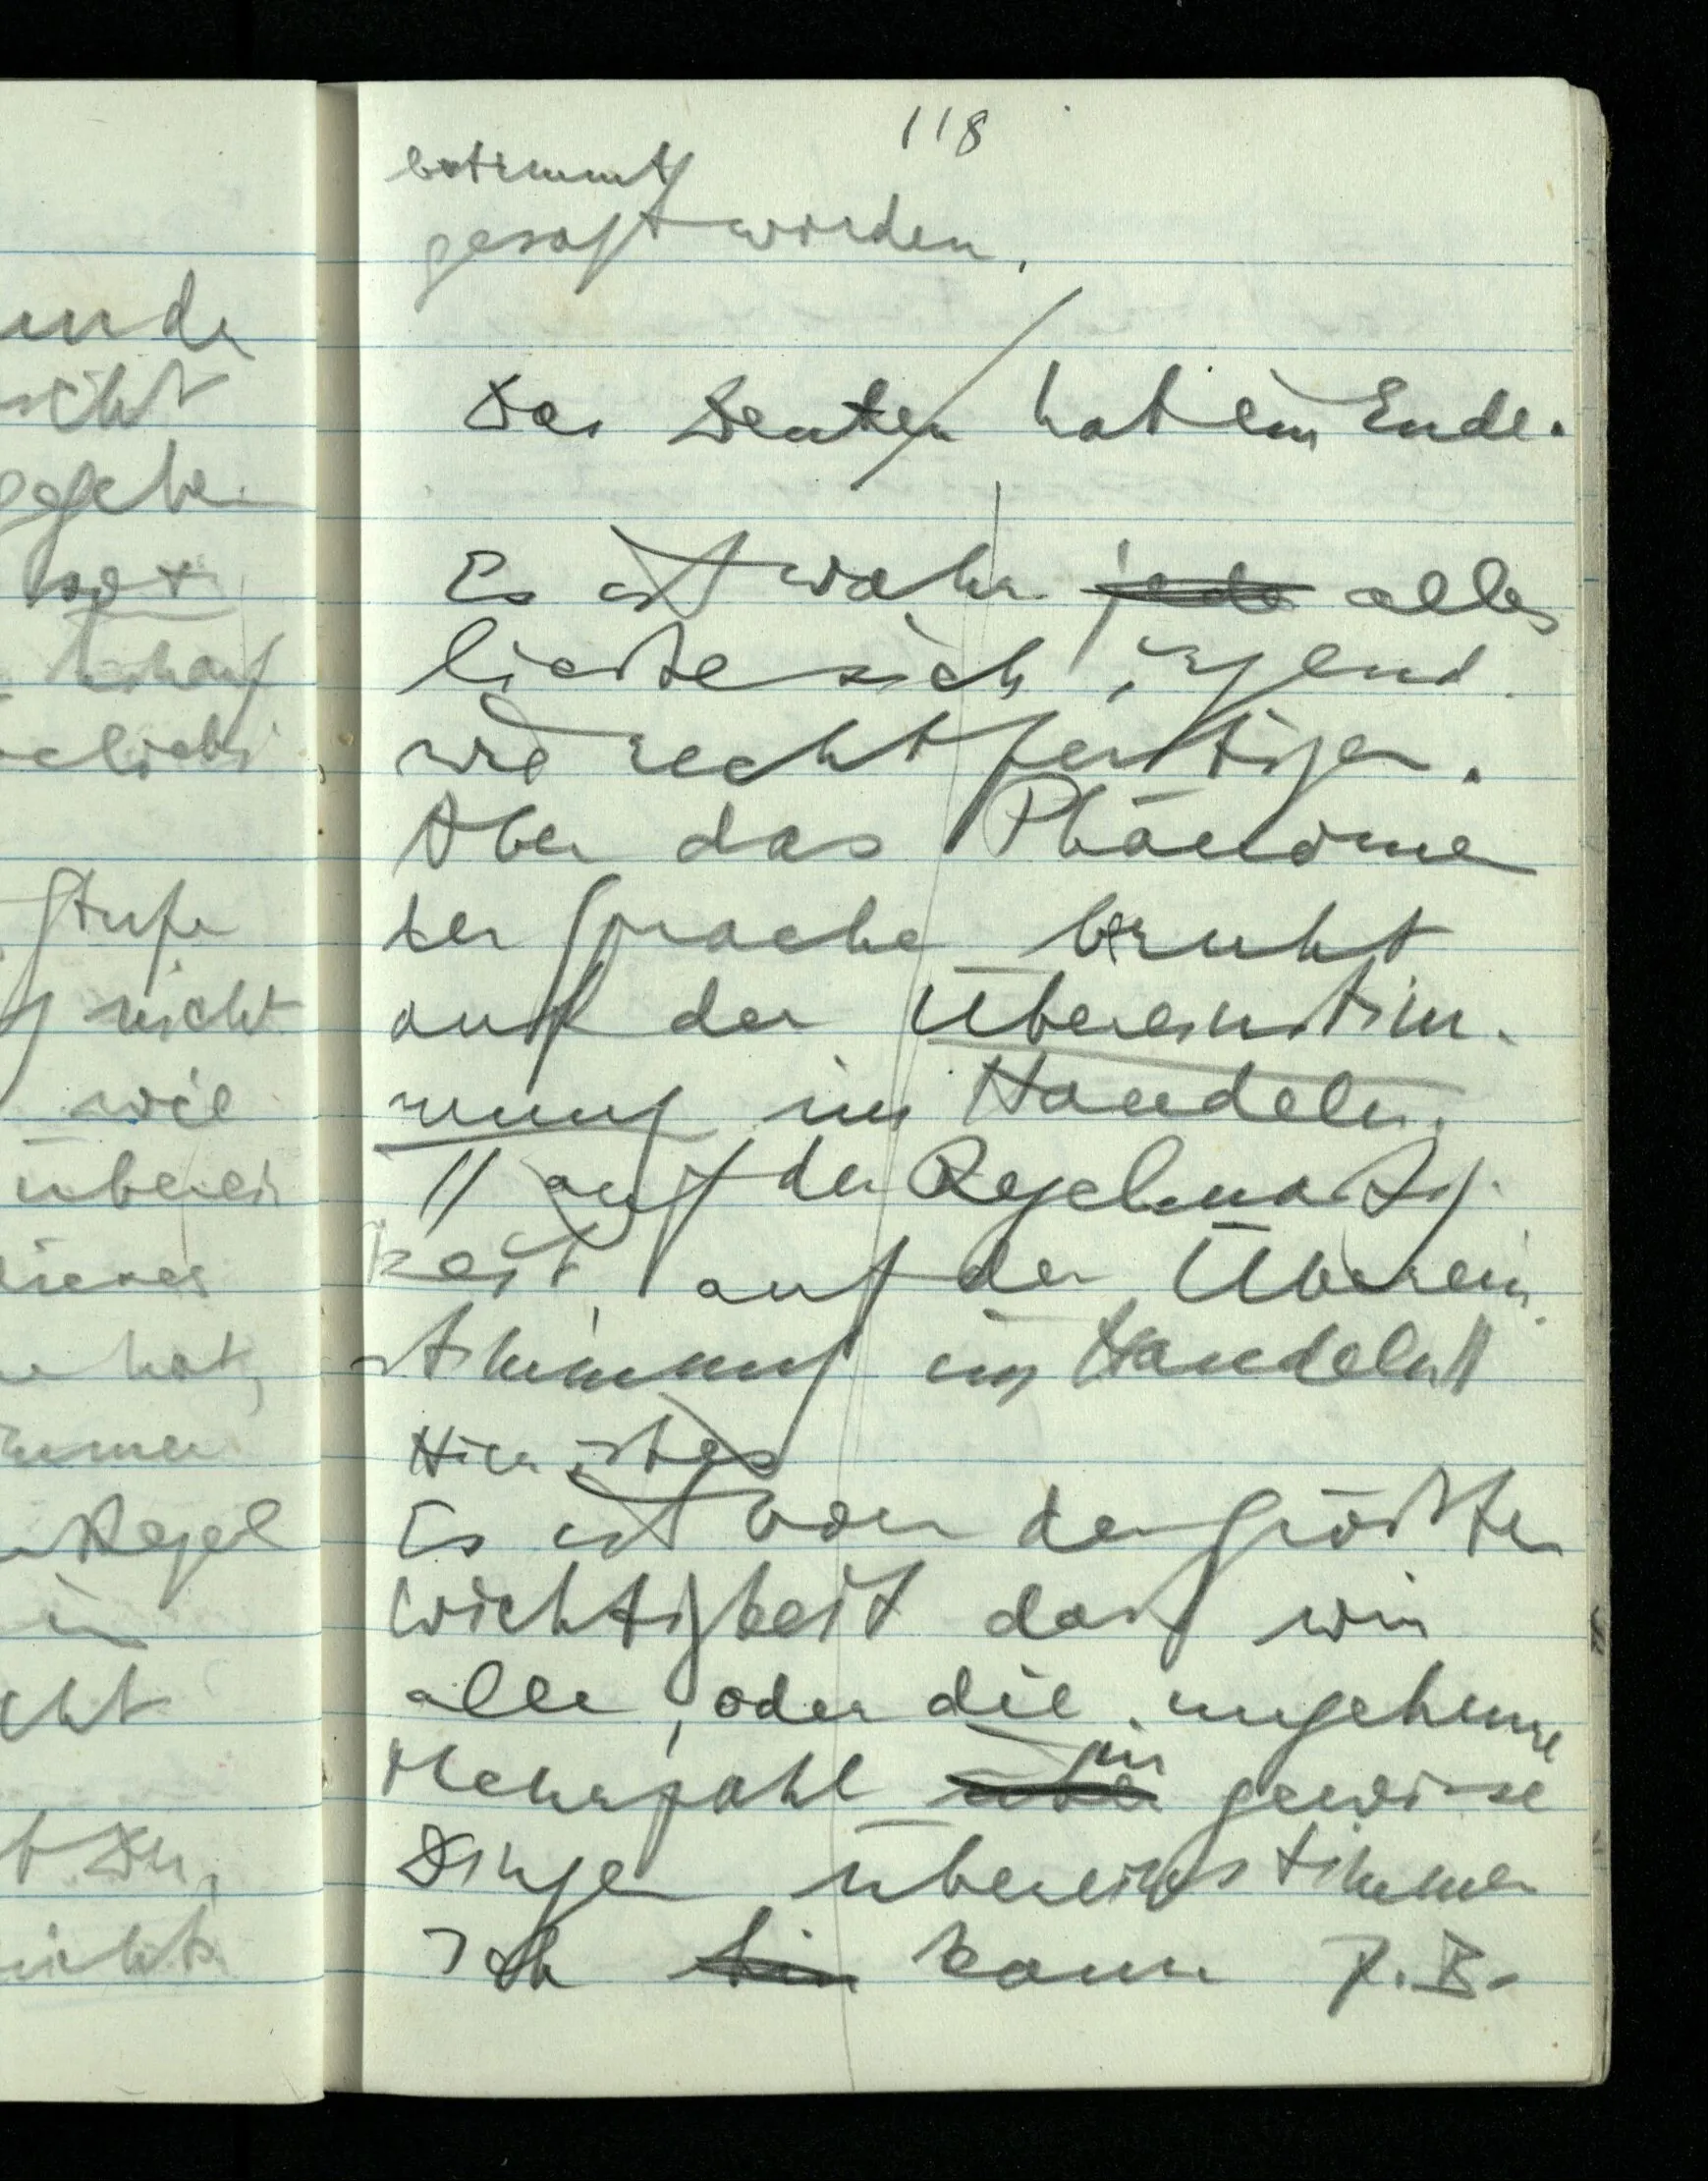 118
bestimmt
gesagt worden.
Das Deuten hat ein Ende.
Es ist wahr jede alles
ließe sich irgend-
wie rechtfertigen.
Aber das Phänomen
der Sprache beruht
auf der Übereinstim-
mung im Handeln.
// auf der Regelmäßig-
keit, auf der Überein-
stimmung im Handeln//
Hier ist es
Es ist von der größten
Wichtigkeit daß wir
alle, oder die ungeheure
Mehrzahl in
über gewisse
Dingen übereinstimmen
Ich bin kann z.B.
nicht
gegeben
Stufe
nicht
wie
überein
dieses
hat,
Regel
in